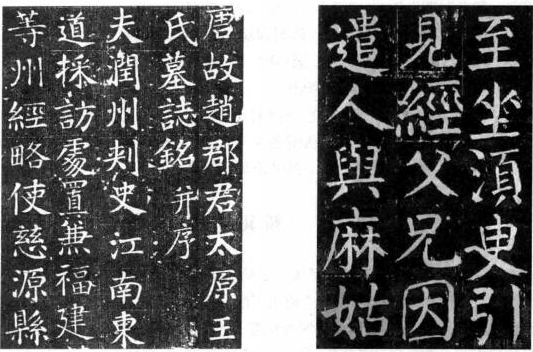 唐故趙郡君太原王
氏墓誌銘并序
夫潤州刾史江南東
道採訪處置兼福建
等州經略使慈源縣
至坐須臾引
見經父兄因
遣人與麻姑